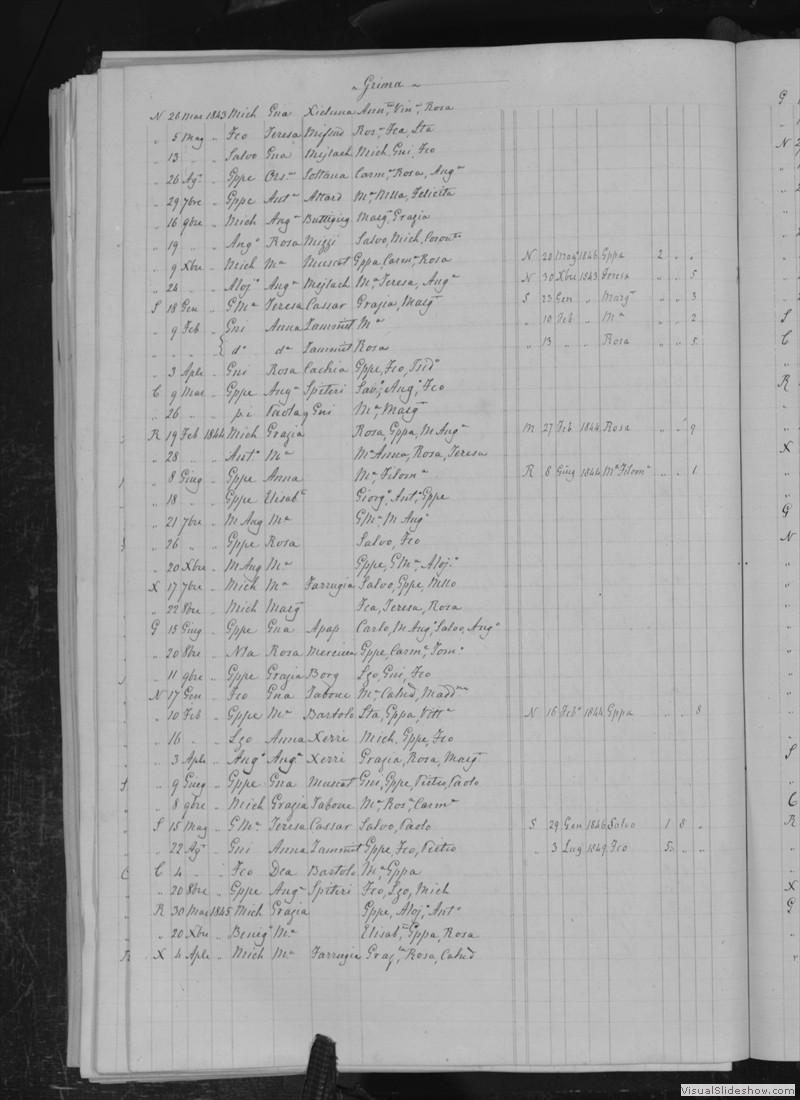 „ Grima „
N 26 Mar 1843 Mich Gna Xicluna Ann.ª Vin.ª Rosa
„ 5 Mag „ Fco Teresa Mifsud Ros.ª Fca, Sta
„ 13 „ „ Salvo Gna Mejlach Mich, Gni, Fco
„ 26 Ag.º „ Gppe Ors.ª Soltana Carm.ª Rosa, Ang.ª
„ 29 7bre „ Gppe Ant.ª Attard M.ª Nlla, Felicita
„ 16 9bre „ Mich Ang.ª Buttigieg Marg, Grazia
„ 19 „ „ Ang.º Rosa Mizzi Salvo, Mich, Coront.ª
„ 9 Xbre „ Mich M.ª Muscat Gppa, Carm.ª Rosa N 20 Mag.º 1846 Gppa 2 „ „
„ 24 „ „ Aloj.º Ang.ª Mejlach M.ª Teresa, Ang.ª N 30 Xbre 1843 Teresa „ „ 5
S 18 Gen „ G M.ª Teresa Cassar Grazia, Marg S 23 Gen „ Marg „ „ 3
„ 9 Feb „ Gni Anna Zammit M.ª „ 10 Feb „ M.ª „ „ 2
„ „ „ „ { d.º d.ª Zammit Rosa „ 13 „ „ Rosa „ „ 5
„ 3 Aple „ Gni Rosa Cachia Gppe, Fco, Isid.º
C 9 Mar „ Gppe Ang.ª Spiteri Sav.º, Ang.º, Fco
„ 26 „ „ p.i Paola q Gni M.ª, Marg
R 19 Feb 1844 Mich Grazia Rosa, Gppa, M Ang.ª M 27 Feb 1844 Rosa „ „ 9
„ 28 „ „ Ant.º M.ª M.ª Anna, Rosa, Teresa
„ 8 Giug „ Gppe Anna M.ª, Filom.ª R 8 Giug 1844 M.ª Filom.ª „ „ 1
„ 18 „ „ Gppe Elisab.ª Giorg.º, Ant.º, Gppe
„ 21 7bre „ M Ang M.ª G M.ª, M Ang.º
„ 26 „ „ Gppe Rosa Salvo, Fco
„ 20 Xbre „ M Ang M.ª Gppe, G M.ª, Aloj.º
X 17 7bre „ Mich M.ª Farrugia Salvo, Gppe, Nllo
„ 22 8bre „ Mich Marg Fca, Teresa, Rosa
G 15 Giug „ Gppe Gna Apap Carlo, M Ang.º, Salvo, Ang.º
„ 20 8bre „ Nla Rosa Mercieca Gppe, Carm.º, Tom.º
„ 11 9bre „ Gppe Grazia Borg Lzo, Gni, Fco
N 17 Gen „ Fco Gna Tabone M.ª Catnd, Madd.ª
„ 10 Feb „ Gppe M.ª Bartolo Sta, Gppa, Vitt.ª N 16 Feb.º 1844 Gppa „ „ 8
„ 16 „ „ Lzo Anna Xerri Mich, Gppe, Fco
„ 3 Aple „ Ang.º Ang.ª Xerri Grazia, Rosa, Marg
„ 9 Giug „ Gppe Gna Muscat Gni, Gppe, Pietro, Paolo
„ 8 9bre „ Mich Grazia Tabone M.ª Ros.ª Carm.ª
S 15 Mag „ G M.ª Teresa Cassar Salvo, Paolo S 29 Gen 1846 Salvo 1 8 „
„ 22 Ag.º „ Gni Anna Zammit Gppe, Fco, Pietro „ 3 Lug 1849 Fco 5 „ „
C 4 „ „ Fco Dca Bartolo M.ª, Gppa
„ 20 8bre „ Gppe Ang.ª Spiteri Fco, Lzo, Mich
R 30 Mar 1845 Mich Grazia Gppe, Aloj.º, Ant.º
„ 20 Xbre „ Beneg.º M.ª Elisab.ª, Gppa, Rosa
X 4 Aple „ Mich M.ª Farrugia Rosa, Catnd
VisualSlideshow.com